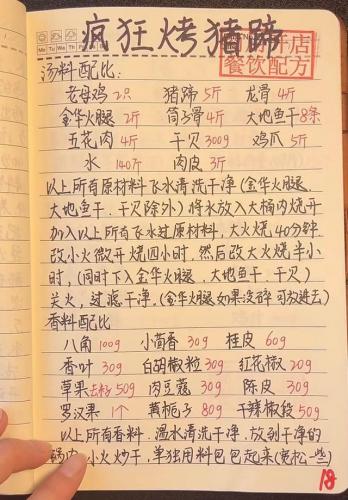 疯狂烤猪蹄
餐饮配方
汤料配比:
老母鸡 2只 猪蹄 5斤 龙骨 4斤
金华火腿 2斤 筒子骨 4斤 大地鱼干 8条
五花肉 4斤 干贝 300g 鸡爪 5斤
水 140斤 肉皮 3斤
以上所有原材料飞水清洗干净(金华火腿、
大地鱼干、干贝除外)将水放入大桶内烧开
加入以上所有飞水过原材料,大火烧40分钟
改小火微开烧四小时,然后改大火烧半小
时,(同时下入金华火腿、大地鱼干、干贝)
关火,过滤干净,(金华火腿如果没碎可放进去)
香料配比
八角 100g 小茴香 30g 桂皮 60g
香叶 30g 白胡椒粒 30g 红花椒 20g
草果去籽 50g 肉豆蔻 30g 陈皮 30g
罗汉果 1个 黄栀子 80g 干辣椒段 50g
以上所有香料,温水清洗干净,放到干净的
锅内,小火炒干,单独用料包包起来(宽松一些)
18